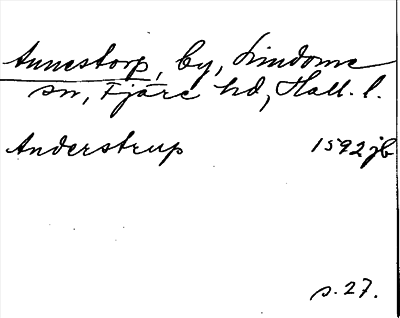 Annestorp, by, Lindome
sn, Fjäre hd, Hall. l.
Anderstrup 1592 jb
s. 27.